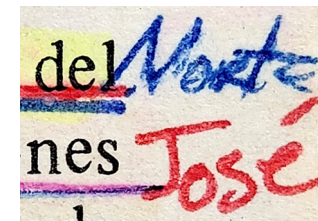 del Monte
nes José